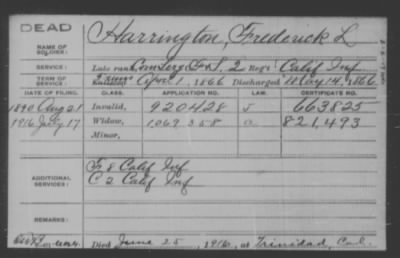 DEAD
NAME OF SOLDIER: Harrington, Frederick L
SERVICE: Late rank, Com Serg F&S. 2 Reg't Calif Inf
TERM OF SERVICE: April 1, 1866 Discharged May 14, 1866
DATE OF FILING. CLASS. APPLICATION NO. LAW. CERTIFICATE NO.
1890 Aug 21 Invalid, 920428 J 663825
1916 July 17 Widow, 1069358 O 821,493
Minor,
ADDITIONAL SERVICES: F 8 Calif Inf
C 2 Calif Inf
REMARKS:
Died June 25, 1916, at Trinidad, Col.